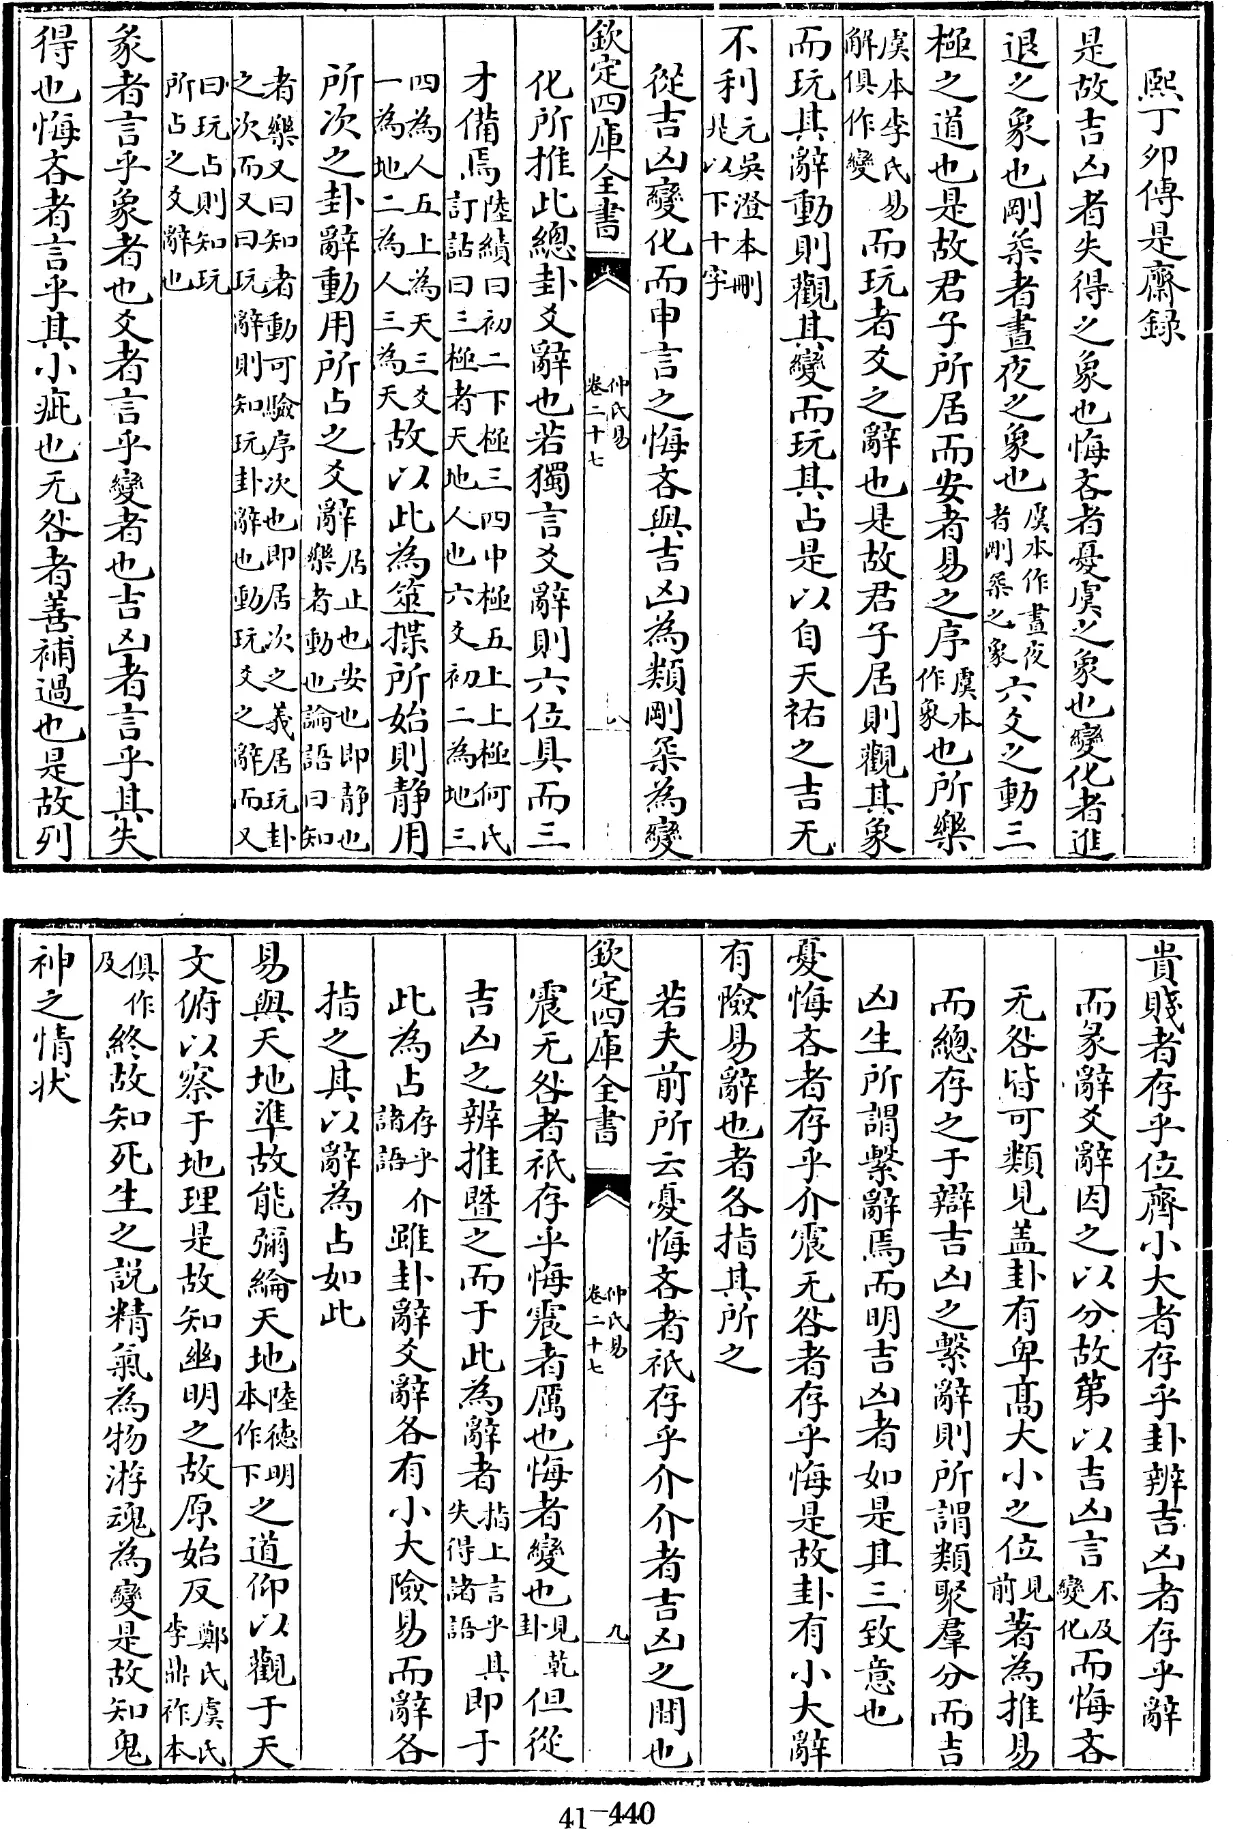 熙丁卯傳是齋錄
是故吉凶者失得之象也悔吝者憂虞之象也變化者進
退之象也剛柔者晝夜之象也虞本作晝夜者剛柔之象六爻之動三
極之道也是故君子所居而安者易之序虞本作象也所樂
虞本李氏易解俱作變而玩者爻之辭也是故君子居則觀其象
而玩其辭動則觀其變而玩其占是以自天祐之吉无
不利元吳澄本刪是以下十字
從吉凶變化而申言之悔吝與吉凶為類剛柔為變
欽定四庫全書
仲氏易
卷二十七
八
化所推此總卦爻辭也若獨言爻辭則六位具而三
才備焉陸績曰初二下極三四中極五上上極何氏訂詁曰三極者天地人也六爻初二為地三
四為人五上為天三爻一為地二為人三為天故以此為筮揲所始則靜用
所次之卦辭動用所占之爻辭居止也安也即靜也樂者動也論語曰知
者樂又曰知者動可驗序次也即居次之義居玩卦之次而又曰玩辭則知玩卦辭也動玩爻之辭而又
曰玩占則知玩所占之爻辭也
彖者言乎象者也爻者言乎變者也吉凶者言乎其失
得也悔吝者言乎其小疵也无咎者善補過也是故列
貴賤者存乎位齊小大者存乎卦辨吉凶者存乎辭
而彖辭爻辭因之以分故第以吉凶言不及變化而悔吝
无咎皆可類見蓋卦有卑高大小之位見前著為推易
而總存之于辯吉凶之繫辭則所謂類聚羣分而吉
凶生所謂繫辭焉而明吉凶者如是其三致意也
憂悔吝者存乎介震无咎者存乎悔是故卦有小大辭
有險易辭也者各指其所之
若夫前所云憂悔吝者祇存乎介介者吉凶之間也
欽定四庫全書
仲氏易
卷二十七
九
震无咎者祇存乎悔震者厲也悔者變也見乾卦但從
吉凶之辨推暨之而于此為辭者指上言乎其失得諸語即于
此為占存乎介諸語雖卦辭爻辭各有小大險易而辭各
指之其以辭為占如此
易與天地準故能彌綸天地陸德明本作下之道仰以觀于天
文俯以察于地理是故知幽明之故原始反鄭氏虞氏李鼎祚本
俱作及終故知死生之說精氣為物游魂為變是故知鬼
神之情狀
41-440